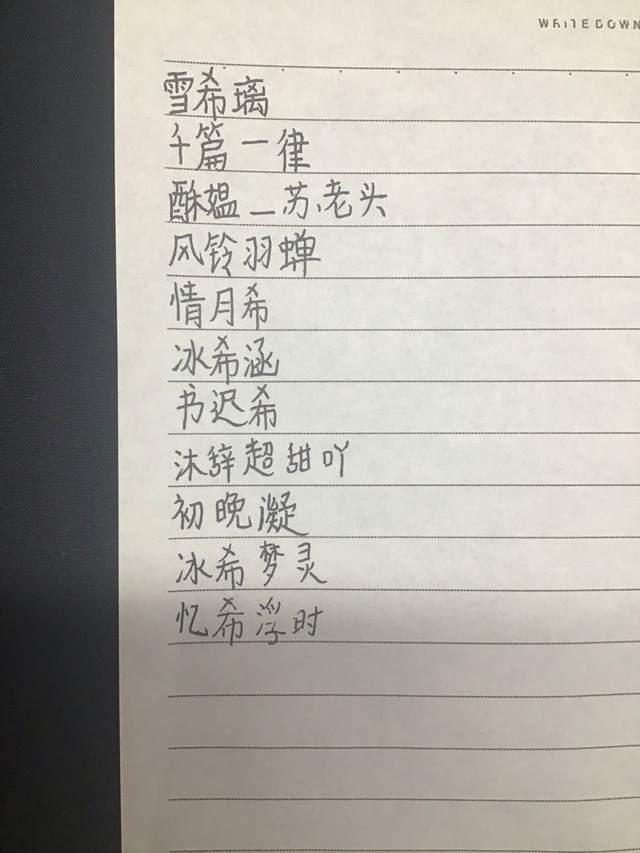 WRITEDOWN
雪希璃
千篇一律
酥媪_苏老头
风铃羽蝉
情月希
冰希涵
书迟希
沐辞超甜吖
初晚凝
冰希梦灵
忆希浮时